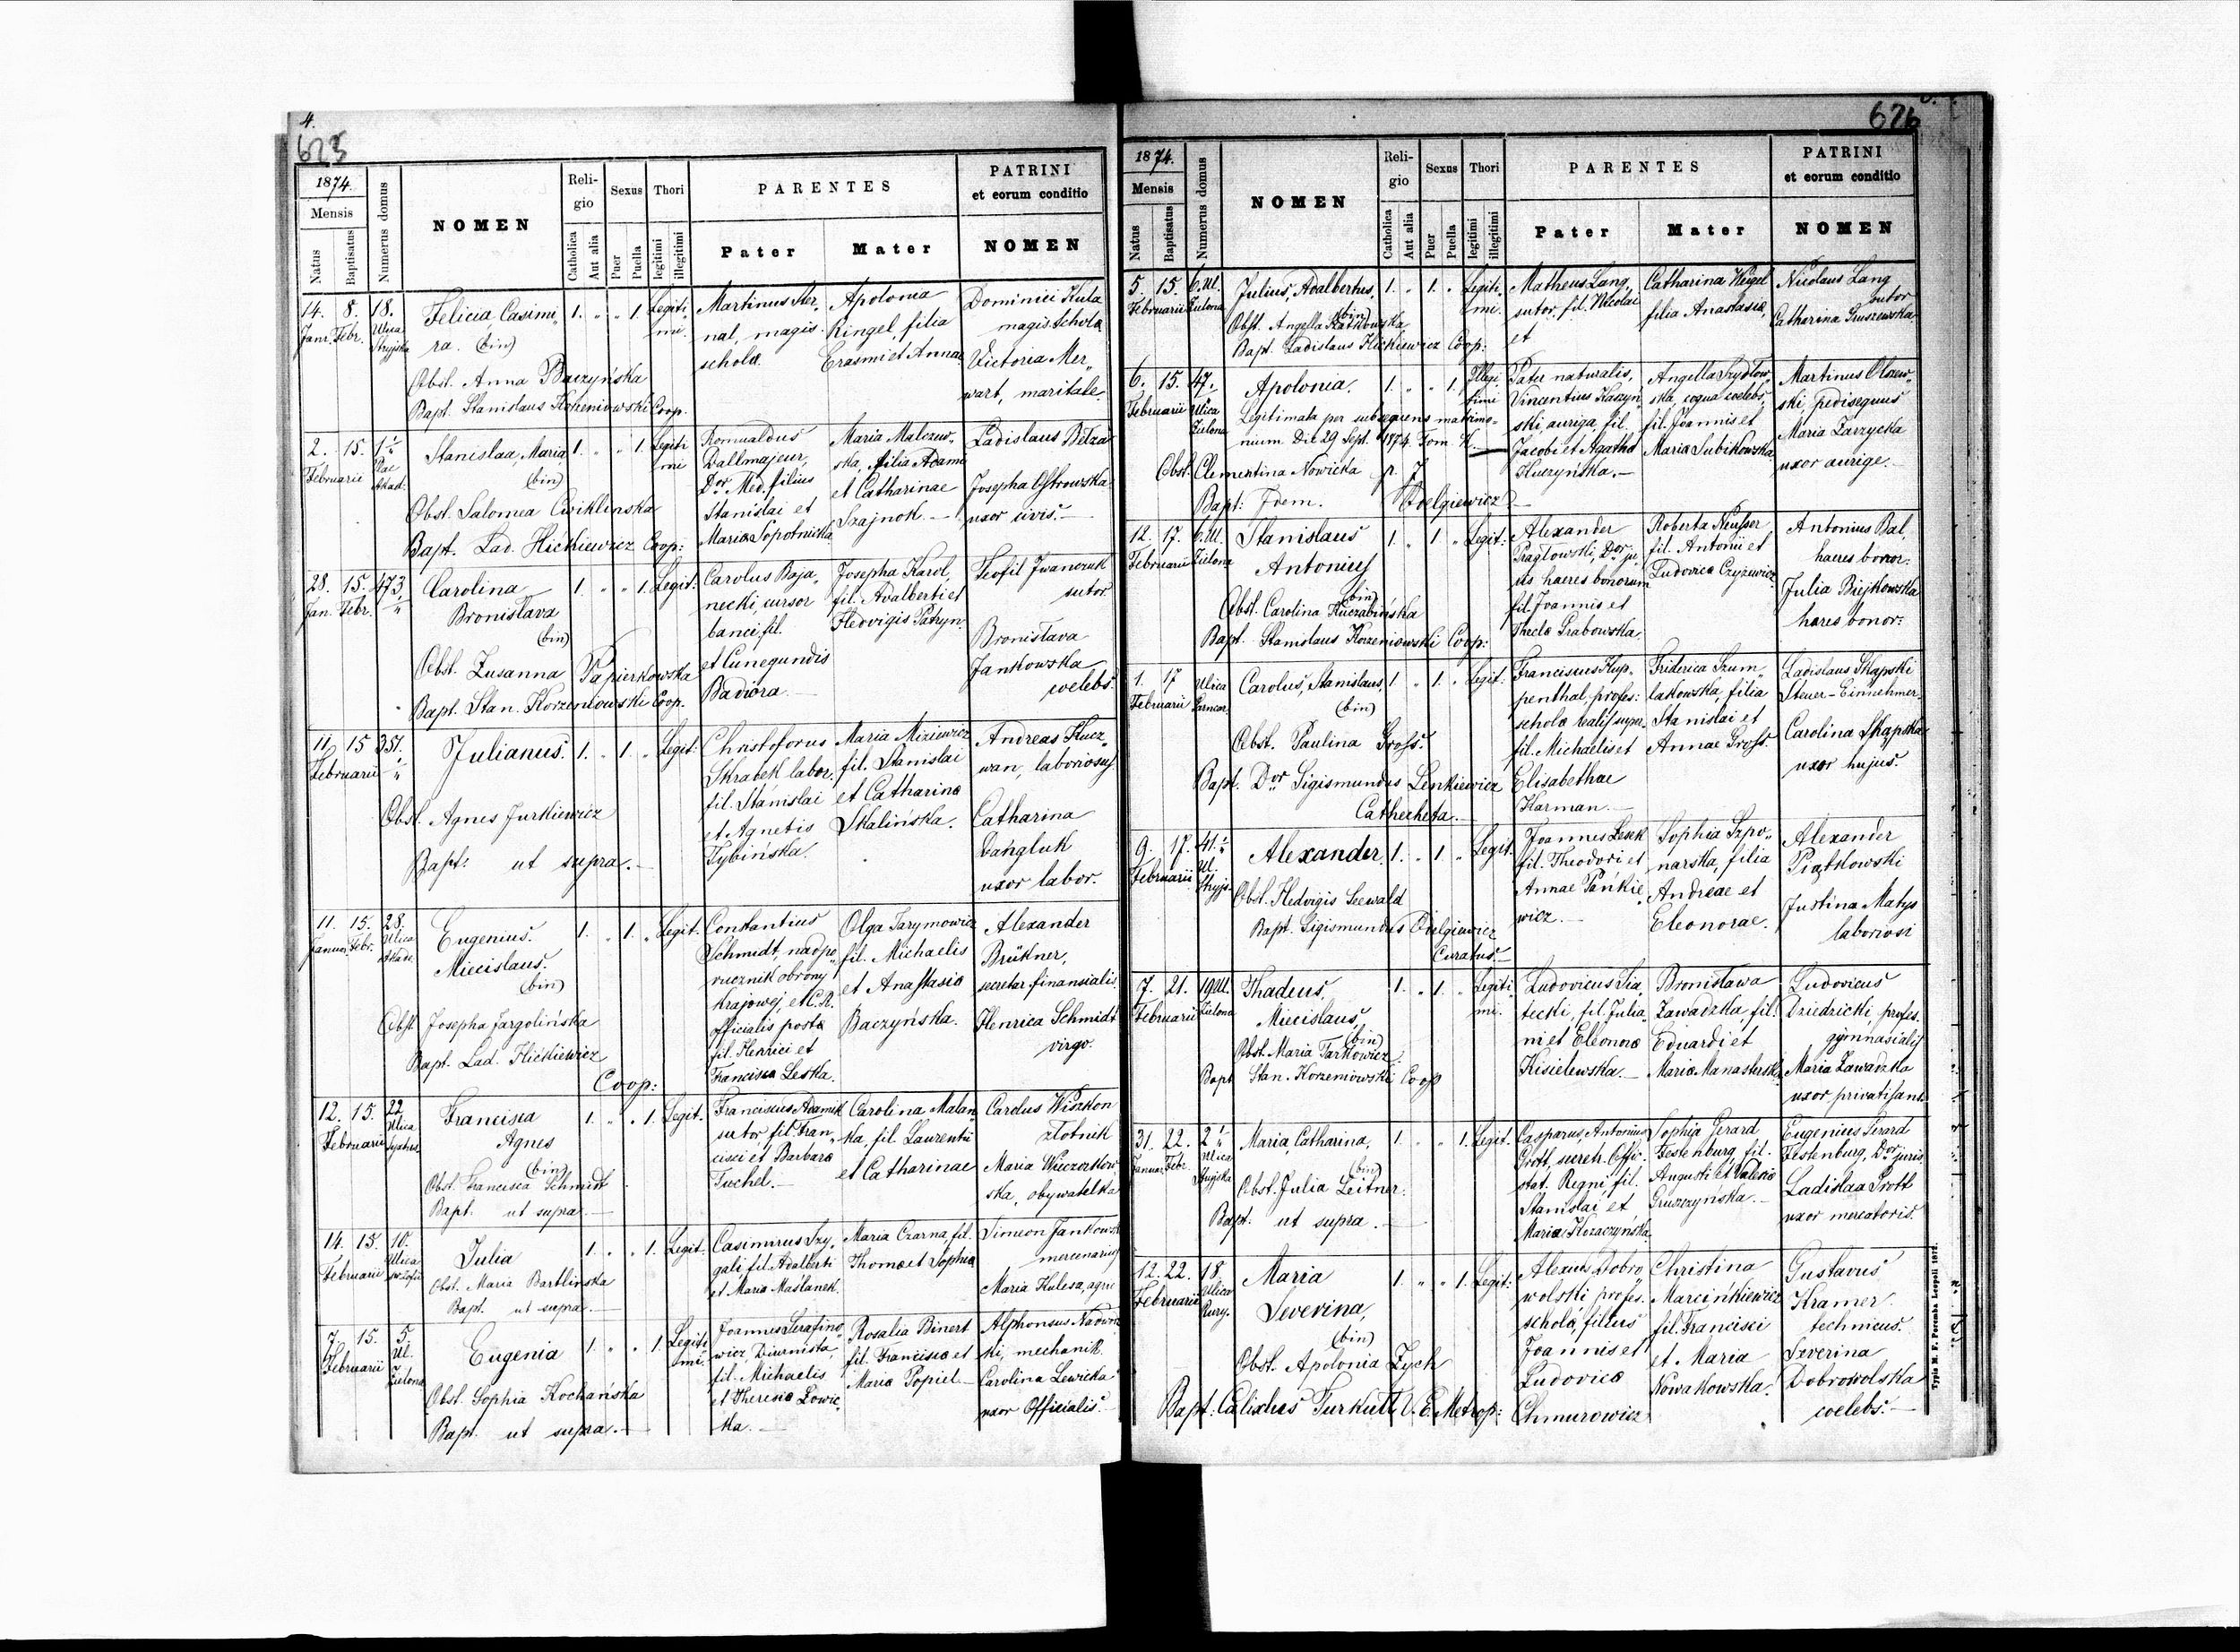 4.
623
1874.
Mensis
Natus
Baptisatus
Numerus domus
NOMEN
Religio
Catholica
Aut alia
Sexus
Puer
Puella
Thori
legitimi
illegitimi
PARENTES
Pater
Mater
PATRINI
et eorum conditio
NOMEN
14. 8. 18. Felicia, Casimi- 1. " " 1. Legiti- Martinus Ster- Apolonia Dominici Kula
Janr. Febr. Ulica Stryjska ra. (bin) mi. nal, magis. Ringel, filia magis. schola
scholæ. Erasmi et Annæ Victoria Mer-
Obst. Anna Baczyńska wart, maritale.
Bapt. Stanislaus Korzeniowski Coop.
2. 15. 1 Stanislaa, Maria, 1. " " 1. Legiti Romualdus Maria Malczew- Ladislaus Bełza
Februarii Akad. (bin) mi Dallmajeur, ska, filia Adami Josepha Ostrowska
Dor Med. filius et Catharinae uxor civis.
Obst. Salomea Cwiklinska Stanislai et Szajnok.
Bapt. Lad. Hickiewicz Coop: Maria Sopotnicka
28. 15. 473. Carolina 1. " " 1. Legit: Carolus Baja- Josepha Karol, Teofil Iwanczuk
Jan. Febr. " Bronislava necki, cursor fil. Adalberti et sutor
(bin) banci, fil. Hedvigis Patryn. Bronislava
Obst. Zusanna Papierkowska et Cunegundis Jankowska
Bapt. Stan. Korzeniowski Coop. Badiora. coelebs.
11. 15 351. Julianus. 1. " 1. " Legit: Christoforus Maria Miziewicz Andreas Kucz-
Februarii " Skrabek labor. fil. Stanislai wan, laboriosus
Obst. Agnes Jurkiewicz fil. Stanislai et Catharinæ Catharina
Bapt: ut supra. et Agnetis Skalińska. Dangluk
Tybińska. uxor labor.
11. 15. 28. Eugenius. 1. " 1. " Legit. Constantius Olga Tarymowicz Alexander
Januar. Febr. Ulica Miecislaus. Schmidt, nadpo- fil. Michaelis Brükner,
(bin) rucznik obrony et Anastasiæ secretar. finansialis.
Obst Josepha Jargolińska krajowej, et C. R. Baczyńska. Henrica Schmidt
Bapt. Lad. Hickiewicz officialis postæ virgo.
Coop: fil. Henrici et
Francisca Leska.
12. 15. 22 Francisca 1. " " 1. Legit. Franciscus Adamik Carolina Malan- Carolus Wiszkon
Februarii Ulica Agnes sutor, fil. Fran- ka, fil. Laurentii złotnik
(bin) cisci et Barbaræ et Catharinae Maria Wieczorkow
Obst. Francisca Schmidt Tuchel. ska, obywatelka
Bapt. ut supra.
14. 15. 10. Julia 1. " " 1. Legit. Casimirus Szy- Maria Czarna, fil. Simeon Jankowski
Februarii Ulica Obst. Maria Bartlinska gali, fil. Adalberti Thomæ et Sophiæ mercenarius
Bapt. ut supra. et Maria Maślanek. Maria Kulesza, agric
7. 15. 5. Eugenia 1. " " 1. Legiti Joannes Serafino- Rosalia Binert Alphonsus Nadwor
Februarii Ul. Zielona mi. wicz, Diurnista, fil. Francisci et ki, mechanik.
Obst. Sophia Kochańska fil. Michaelis Maria Popiel. Carolina Lewicka
Bapt. ut supra. et Theresiæ Łowic- uxor Officialis.
ka.
626
1874.
Mensis
Natus
Baptisatus
Numerus domus
NOMEN
Religio
Catholica
Aut alia
Sexus
Puer
Puella
Thori
legitimi
illegitimi
PARENTES
Pater
Mater
PATRINI
et eorum conditio
NOMEN
5. 15. 6. Ul. Julius, Adalbertus, 1. " 1. " Legiti- Matheus Lang, Catharina Weigel Nicolaus Lang
Februarii Zielona (bin) mi. sutor, fil. Nicolai filia Anastasiæ, sutor
Obst. Angella Ratkowska et Catharina Gruszewska.
Bapt. Ladislaus Hickiewicz Coop:
6. 15. 47. Apolonia. 1. " " 1. Illegi- Pater naturalis, Angella Szydłow- Martinus Olszew-
Februarii Ulica Zielona Legitimata per subsequens matrimo- timi Vincentius Kuczyń- ska coqua coelebs, ski, pedisequus
nium. Die 29 Sept. 1874. Tom. ski, auriga, fil. fil. Joannis et Maria Zarzycka
Obst. Clementina Nowicka p. 7 Jacobi et Agatha Maria Subikowska uxor aurige.
Bapt: Idem. Odelgiewicz Kuczyńska.
12. 17. 6. Ul. Stanislaus 1. " 1. " Legit: Alexander Roberta Neusser Antonius Bal,
Februarii Zielona Antonius Pragłowski, Dor ju- fil. Antonii et haeres bonor.
(bin) ris haeres bonorum Ludovica Czyżewicz Julia Biejkowska
Obst. Carolina Kuczabińska fil. Joannis et hæres bonor:
Bapt. Stanislaus Korzeniowski Coop: Thecla Grabowska.
1. 17 Ulica Carolus, Stanislaus, 1 " 1. " Legit: Franciscus Kup- Friderica Szum- Ladislaus Skąpski
Februarii Garncar. (bin) penthal, profes: lakowska, filia Steuer-Einnehmer.
Obst. Paulina Gross. scholæ realis super. Stanislai et Carolina Skąpska
Bapt. Dor Sigismundus Lenkiewicz fil. Michaelis et Annae Gross. uxor hujus.
Catecheta. Elisabethae
Harman.
9. 17. 41. Alexander. 1. " 1. " Legit. Joannes Lesek Sophia Szpo- Alexander
Februarii Ul. Stryjs. fil. Theodori et narska, filia Piątkowski
Obst. Hedvigis Seewald Annae Pańkie- Andreae et Justina Matys
Bapt. Sigismundus Odelgiewicz wicz. Eleonorae. laboriosi
Curatus.
7. 21. 19 Ul. Thadeus, 1. " 1. " Legiti- Ludovicus Sia- Bronisława Ludovicus
Februarii Zielona Miecislaus, mi. tecki, fil. Julia- Zawadzka, fil: Dziedzicki, profes.
(bin) ni et Eleonoræ Eduardi et gymnasialis
Obst. Maria Tarkowicz Kisielewska. Maria Manasterska Maria Zawadzka
Bapt Stan. Korzeniowski Coop uxor privatisant.
31. 22. 2 Maria, Catharina, 1. " " 1. Legit. Casparus, Antonius Sophia Gerard Eugenius Gerard
Januar. Febr. Ulica Stryjska (bin) Grott, secret. Offi- Festenburg, fil. Festenburg, Dor juris
Obst. Julia Leitner. stat. Regni fil. Augusti et Valeriæ Ladislaa Grott
Bapt. ut supra. Stanislai et Gruszczyńska. uxor mercatoris.
Maria Kozaczyńska.
12. 22. 18. Maria 1. " " 1. Legit: Alexius Dobro Christina Gustavus
Februarii Ulica Rury. Severina, wolski profes. Marcińkiewicz Kramer
(bin) scholæ, filius fil. Francisci technicus.
Obst. Apolonia Zych Joannis et et Maria Severina
Bapt: Calixtus Turkutt V. E. Metrop: Ludovicæ Nowakowska. Dobrowolska
Chmurowicz coelebs.
Typis M. F. Poremba Leopoli 1872.